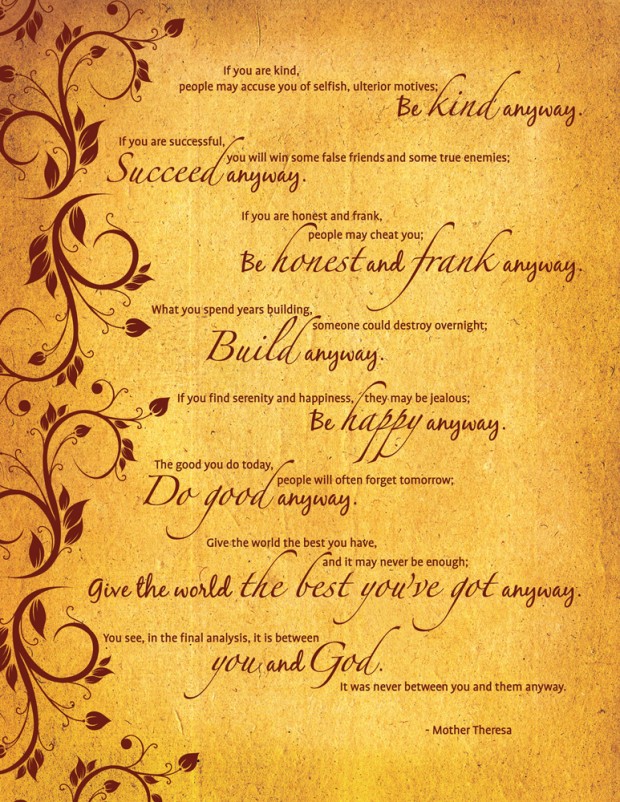 If you are kind,
people may accuse you of selfish, ulterior motives;
Be kind anyway.
If you are successful,
you will win some false friends and some true enemies;
Succeed anyway.
If you are honest and frank,
people may cheat you;
Be honest and frank anyway.
What you spend years building,
someone could destroy overnight;
Build anyway.
If you find serenity and happiness, they may be jealous;
Be happy anyway.
The good you do today,
people will often forget tomorrow;
Do good anyway.
Give the world the best you have,
and it may never be enough;
Give the world the best you've got anyway.
You see, in the final analysis, it is between
you and God.
It was never between you and them anyway.
- Mother Theresa